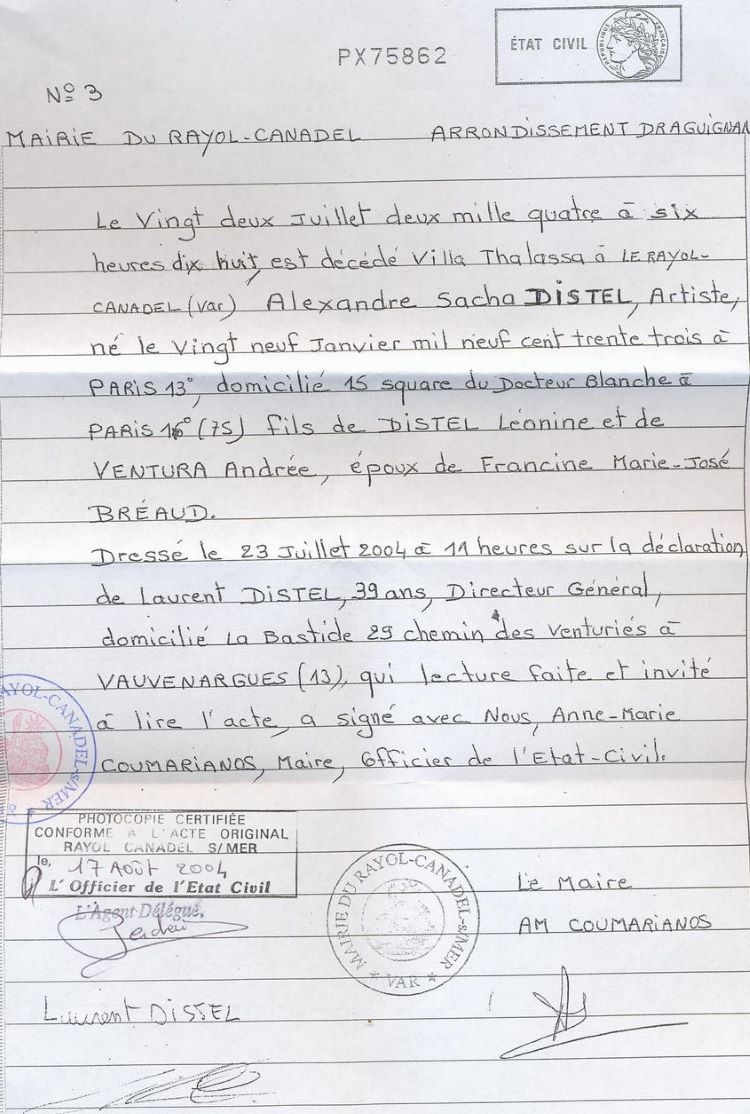 PX75862
ÉTAT CIVIL
RÉPUBLIQUE FRANÇAISE
Nº 3
MAIRIE DU RAYOL-CANADEL ARRONDISSEMENT DRAGUIGNAN
Le Vingt deux Juillet deux mille quatre à six
heures dix huit, est décédé Villa Thalassa à LE RAYOL-
CANADEL (Var) Alexandre Sacha DISTEL, Artiste,
né le Vingt neuf Janvier mil neuf cent trente trois à
PARIS 13°, domicilié 15 square du Docteur Blanche à
PARIS 16° (75) fils de DISTEL Léonine et de
VENTURA Andrée, époux de Francine Marie-José
BRÉAUD.
Dressé le 23 Juillet 2004 à 11 heures sur la déclaration
de Laurent DISTEL, 39 ans, Directeur Général,
domicilié La Bastide 29 chemin des Venturiés à
VAUVENARGUES (13), qui lecture faite et invité
à lire l'acte, a signé avec Nous, Anne-Marie
COUMARIANOS, Maire, Officier de l'Etat-Civil.
RAYOL-CANADEL-s/MER
PHOTOCOPIE CERTIFIÉE
CONFORME A L'ACTE ORIGINAL
RAYOL CANADEL S/MER
le, 17 Août 2004
L'Officier de l'Etat Civil
L'Agent Délégué,
MAIRIE DU RAYOL-CANADEL-s/MER
* VAR *
Le Maire
AM COUMARIANOS
Laurent DISTEL